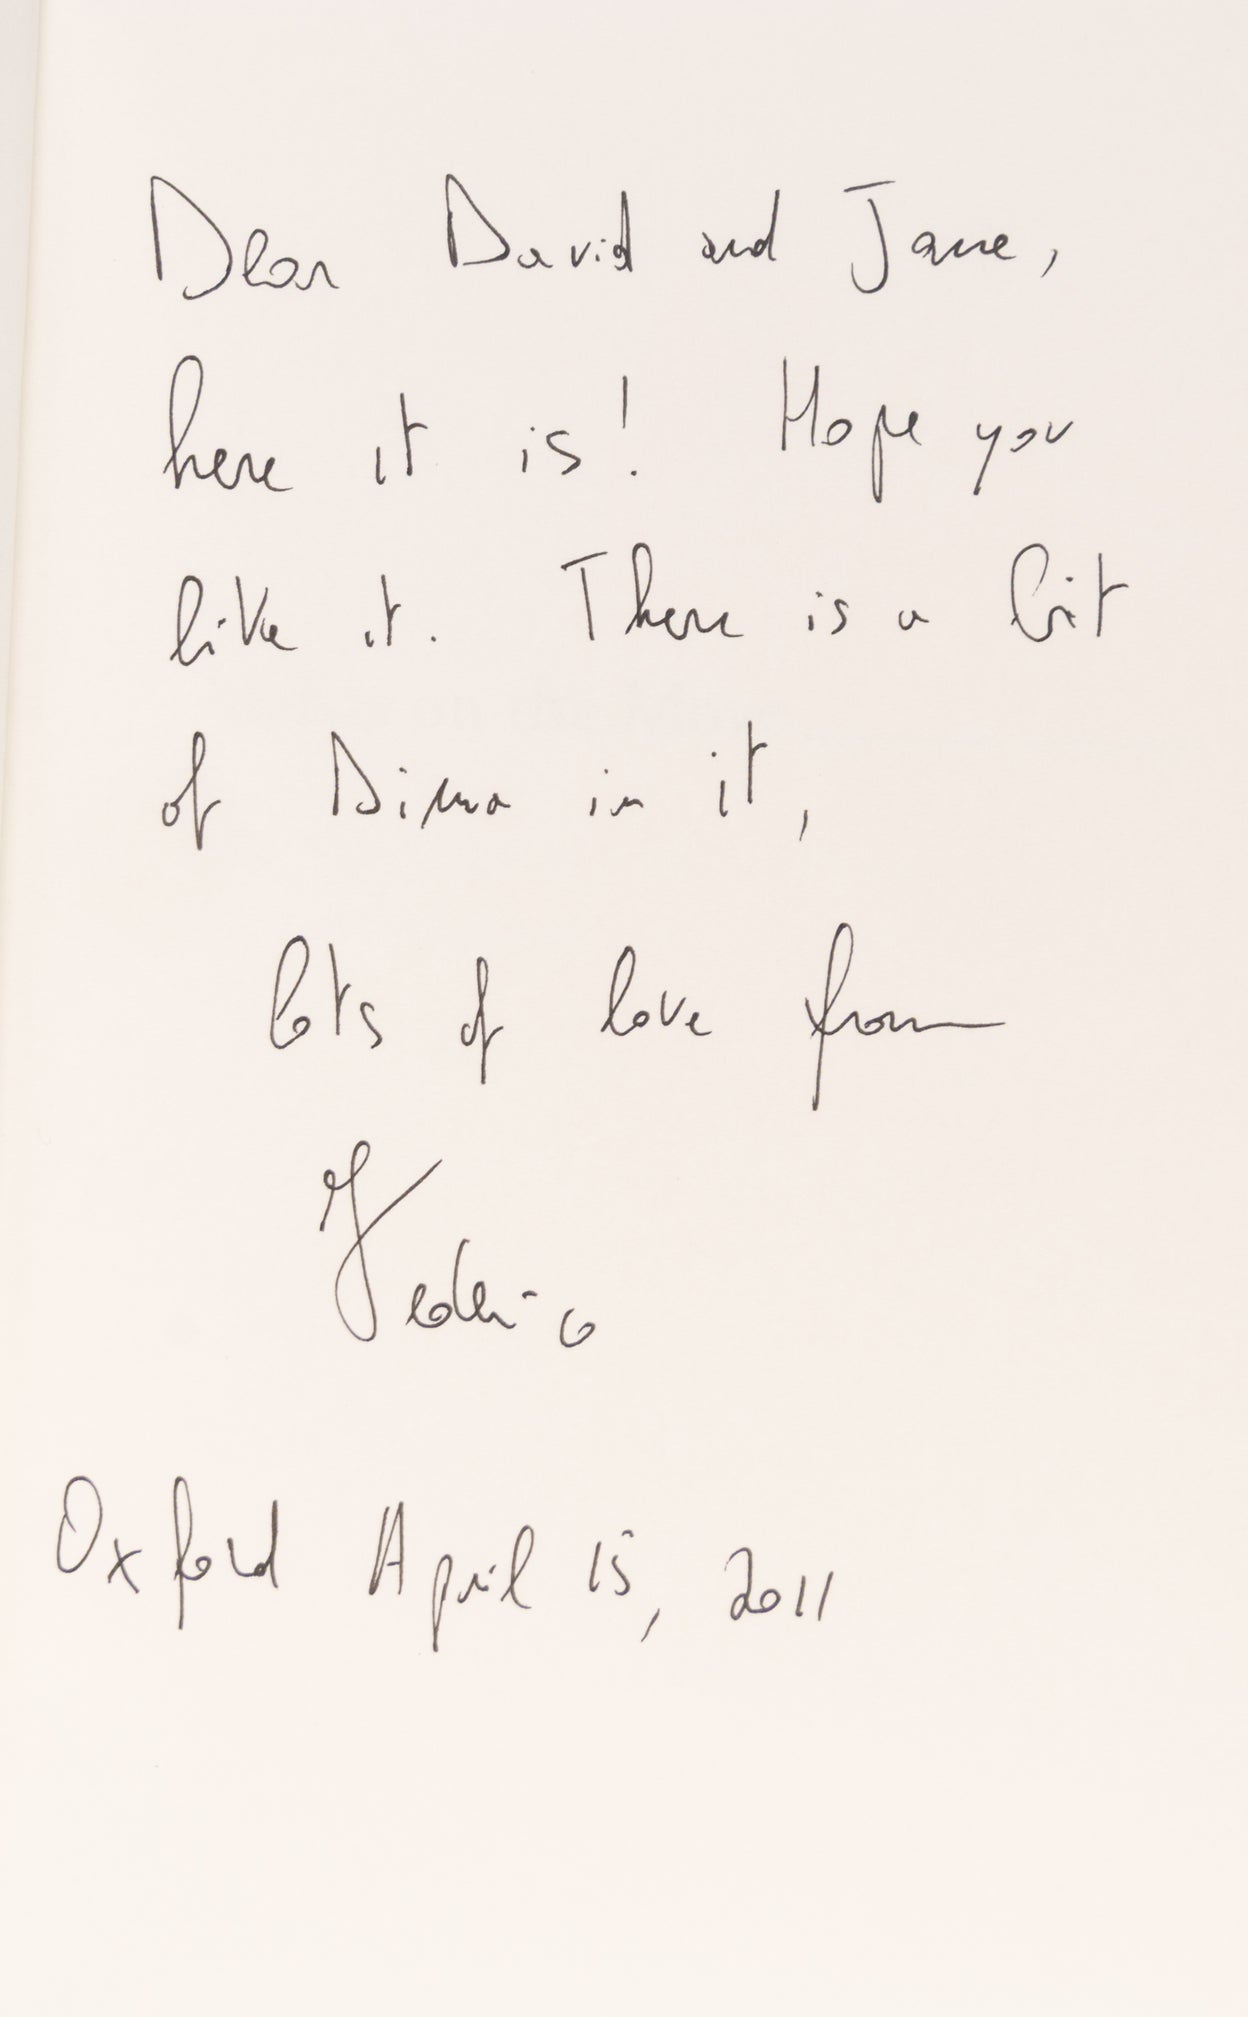 Dear David and Jane,
here it is! Hope you
like it. There is a bit
of Dima in it,
lots of love from
Federico
Oxford April 15, 2011